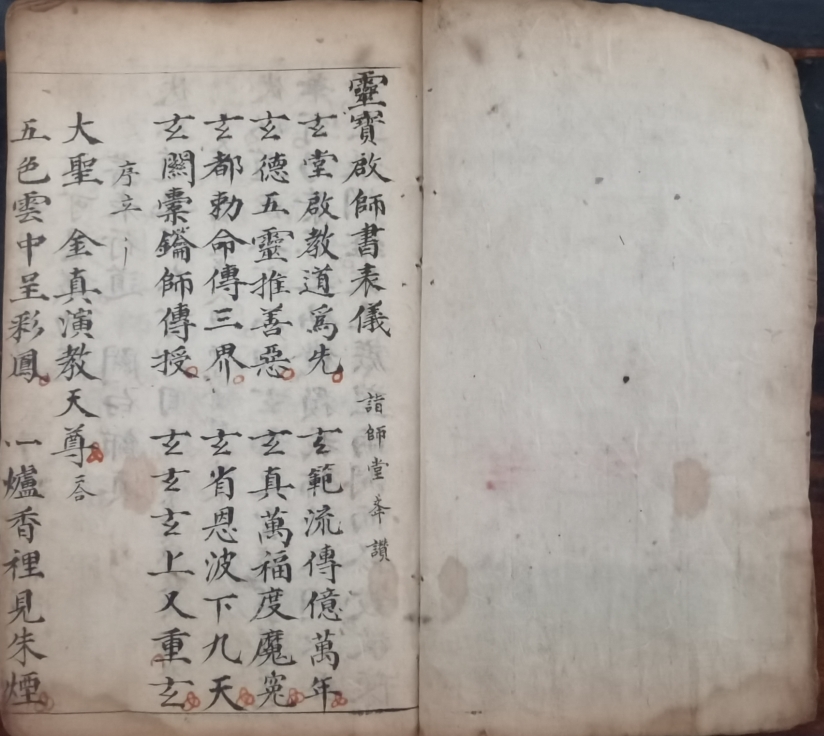 靈寶啟師書表儀 詣師堂舉讚
玄堂啟教道為先 玄範流傳億萬年
玄德五靈推善惡 玄真萬福度魔冤
玄都勅命傳三界 玄省恩波下九天
玄關橐鑰師傳授 玄玄玄上又重玄
序立
大聖 金真演教天尊 仝
五色雲中呈彩鳳 一爐香裡見朱煙